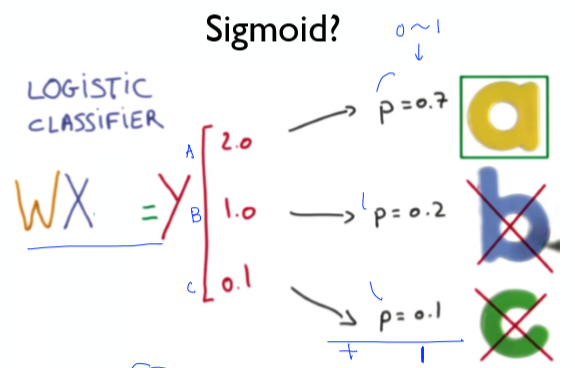 Sigmoid?
0~1
LOGISTIC
CLASSIFIER
WX = Y
A 2.0
B 1.0
C 0.1
p=0.7
p=0.2
p=0.1
+ 1
a
b
c